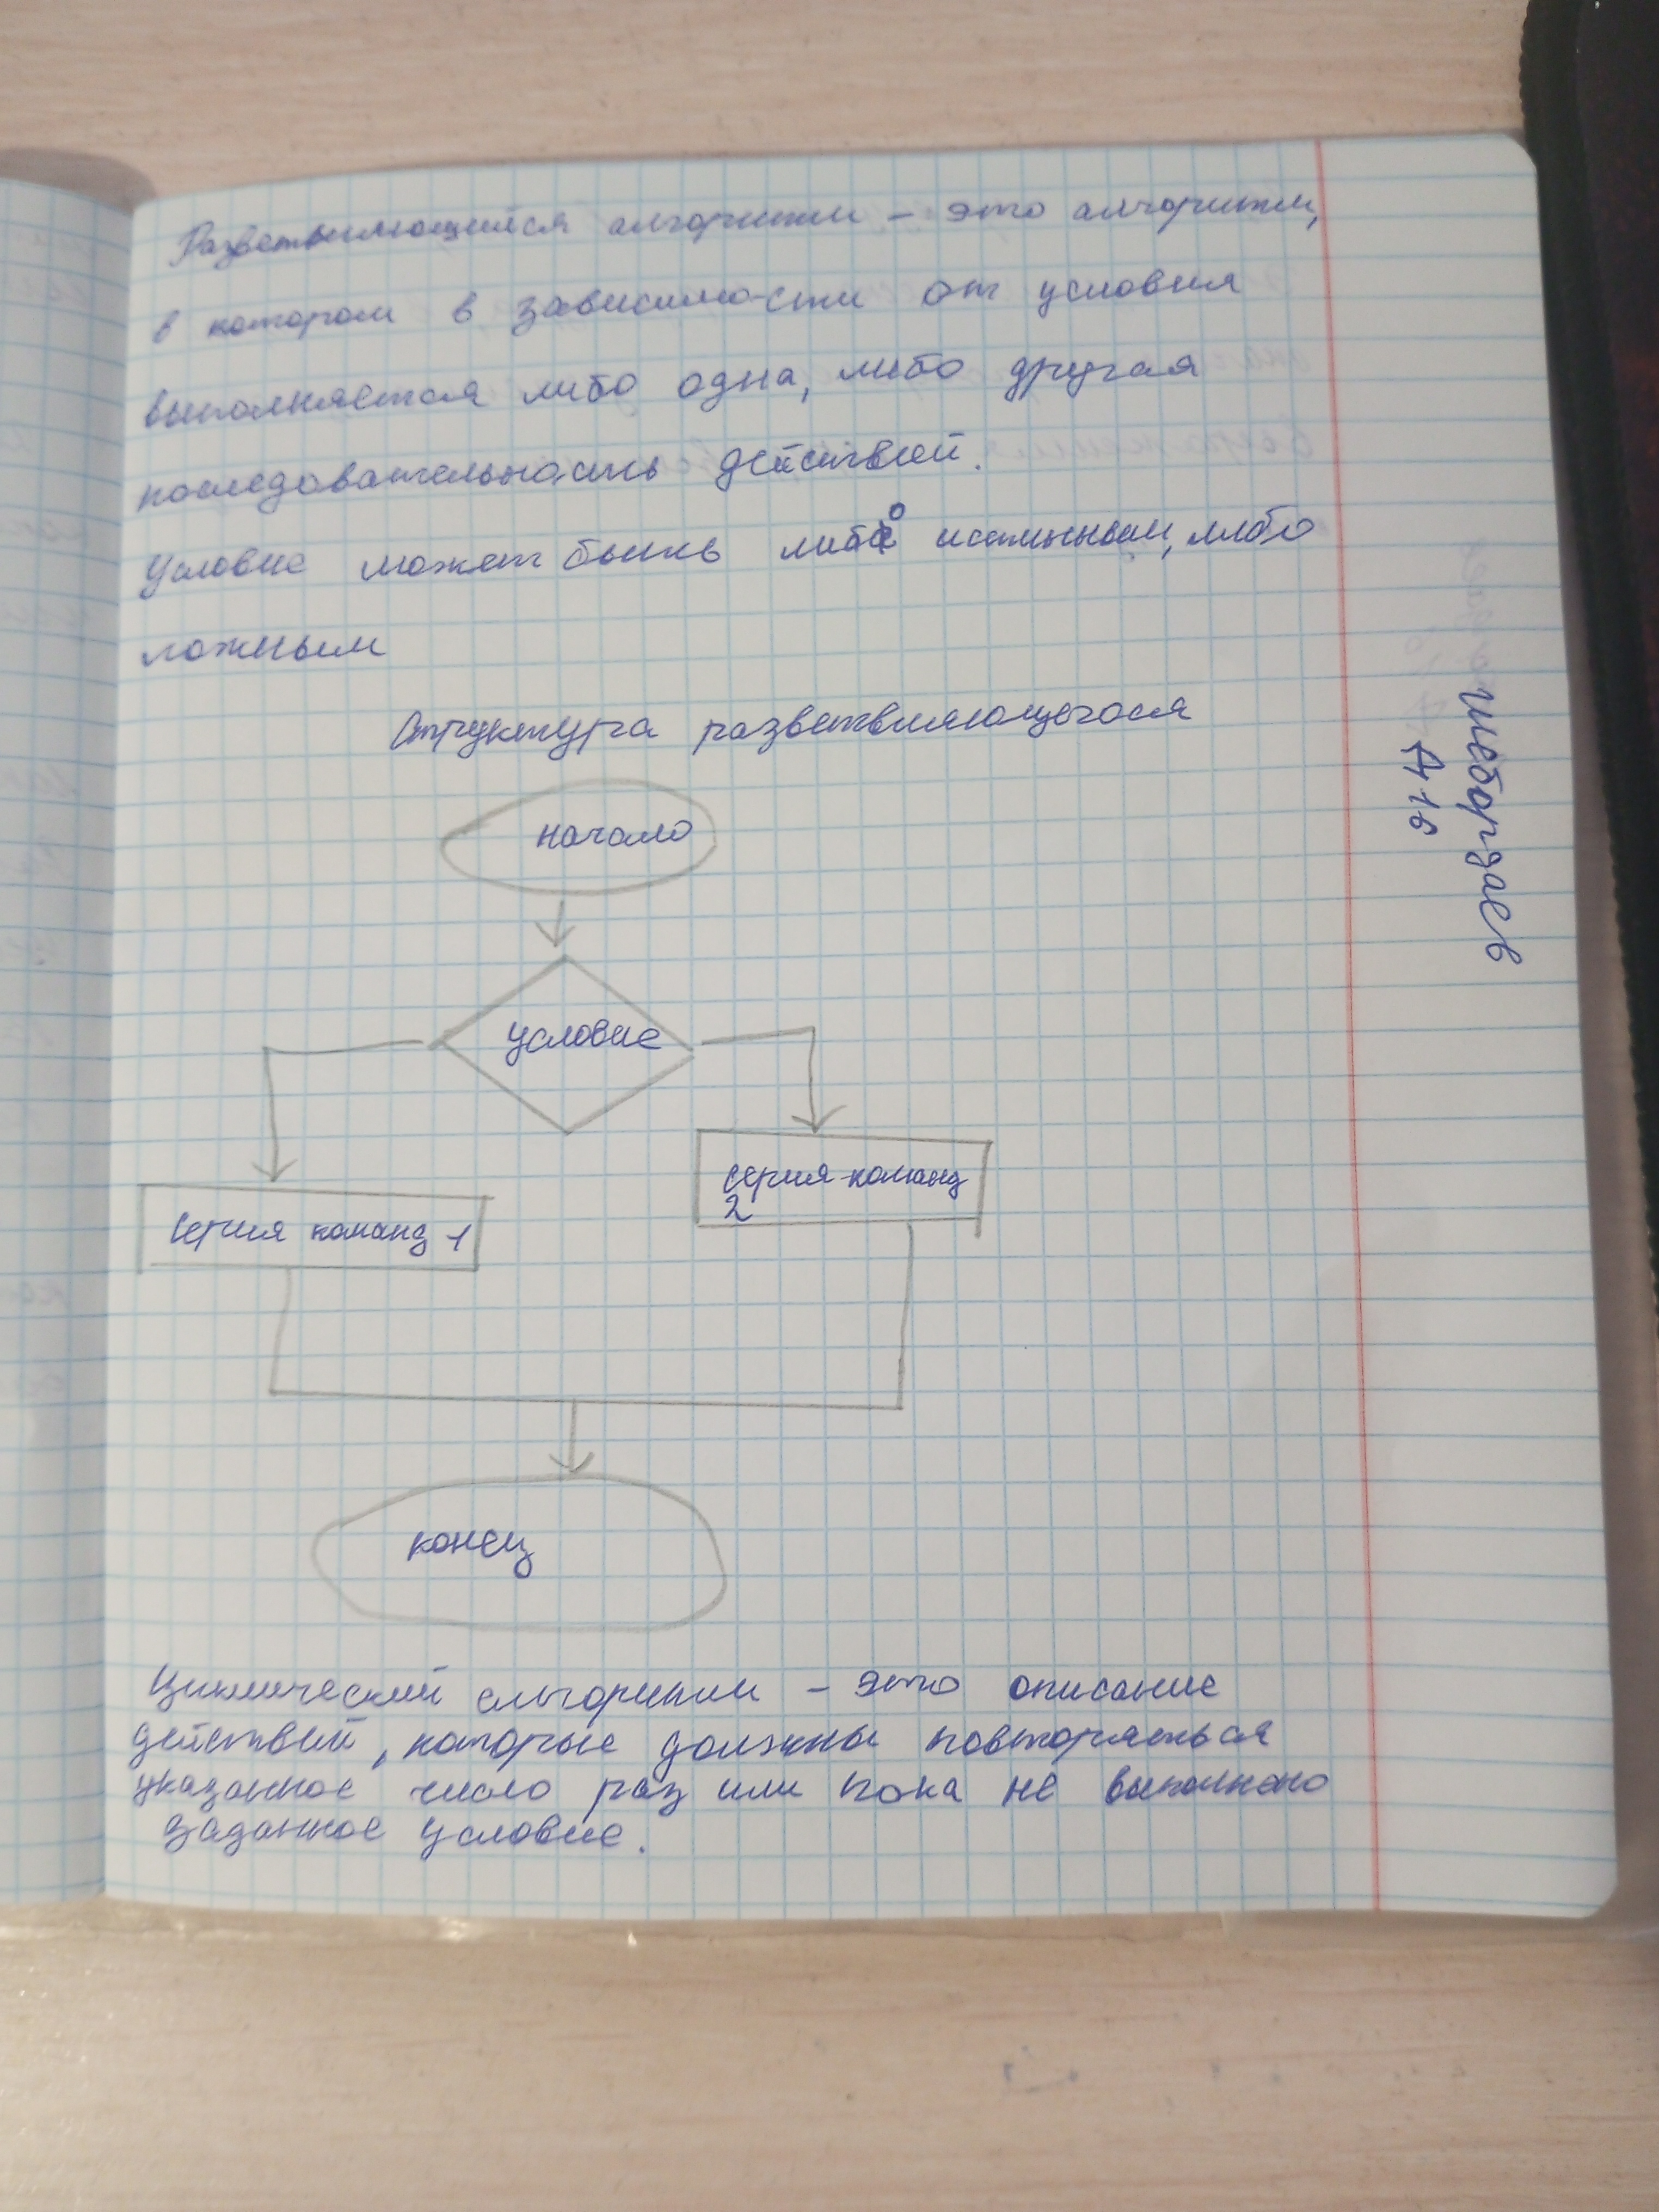 Разветвляющийся алгоритм - это алгоритм,
в котором в зависимости от условия
выполняется либо одна, либо другая
последовательность действий.
Условие может быть либо истинным, либо
ложным
Структура разветвляющегося
начало
условие
серия команд
2
Серия команд 1
конец
Циклический алгоритм - это описание
действий, которые должны повторяться
указанное число раз или пока не выполнено
заданное условие.
Шеборзаев